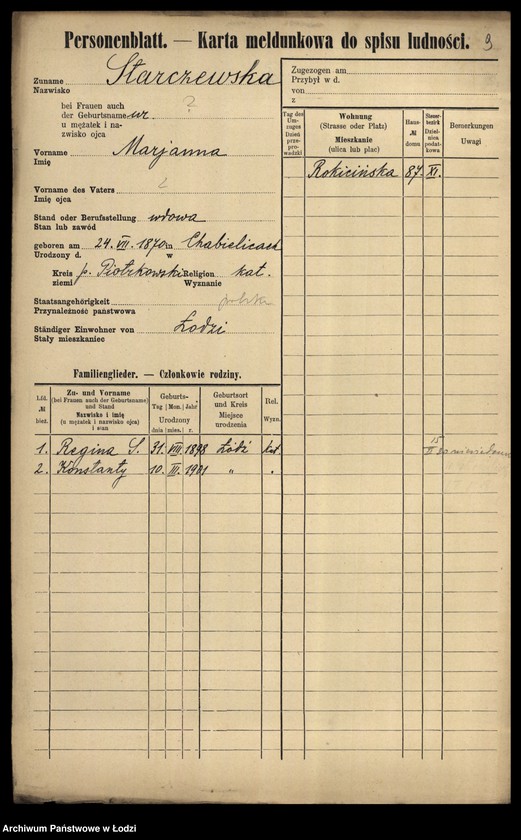 Personenblatt. — Karta meldunkowa do spisu ludności. 9
Zuname Starczewska
Nazwisko
bei Frauen auch
der Geburtsname ur. ?
u mężatek i na-
zwisko ojca
Vorname Marjanna
Imię
Vorname des Vaters
Imię ojca
Stand oder Berufsstellung wdowa
Stan lub zawód
geboren am 24. VII. 1870 in Chabielicach
Urodzony d. w
Kreis p. Piotrkowski Religion kat.
ziemi Wyznanie
Staatsangehörigkeit polska
Przynależność państwowa
Ständiger Einwohner von Łodzi
Stały mieszkaniec
Zugezogen am
Przybył w d.
von
z
Tag des Um-zuges
Dzień prze-pro-wadzki
Wohnung
(Strasse oder Platz)
Mieszkanie
(ulica lub plac)
Haus-
№
domu
Steuer-bezirk
Dziel-nica podat-kowa
Bemerkungen
Uwagi
Rokicińska 87. XI.
Familienglieder. — Członkowie rodziny.
Lfd.
№
bież.
Zu- und Vorname
(bei Frauen auch der Geburtsname)
und Stand
Nazwisko i imię
(u mężatek i nazwisko ojca)
i stan
Geburts-
Tag Mon. Jahr
Urodzony
dnia mies. r.
Geburtsort
und Kreis
Miejsce
urodzenia
Rel.
Wyzn.
1. Regina S. 31. VIII. 1898 Łódź kat.
2. Konstanty 10. III. 1901 " "
15
II 20
Archiwum Państwowe w Łodzi